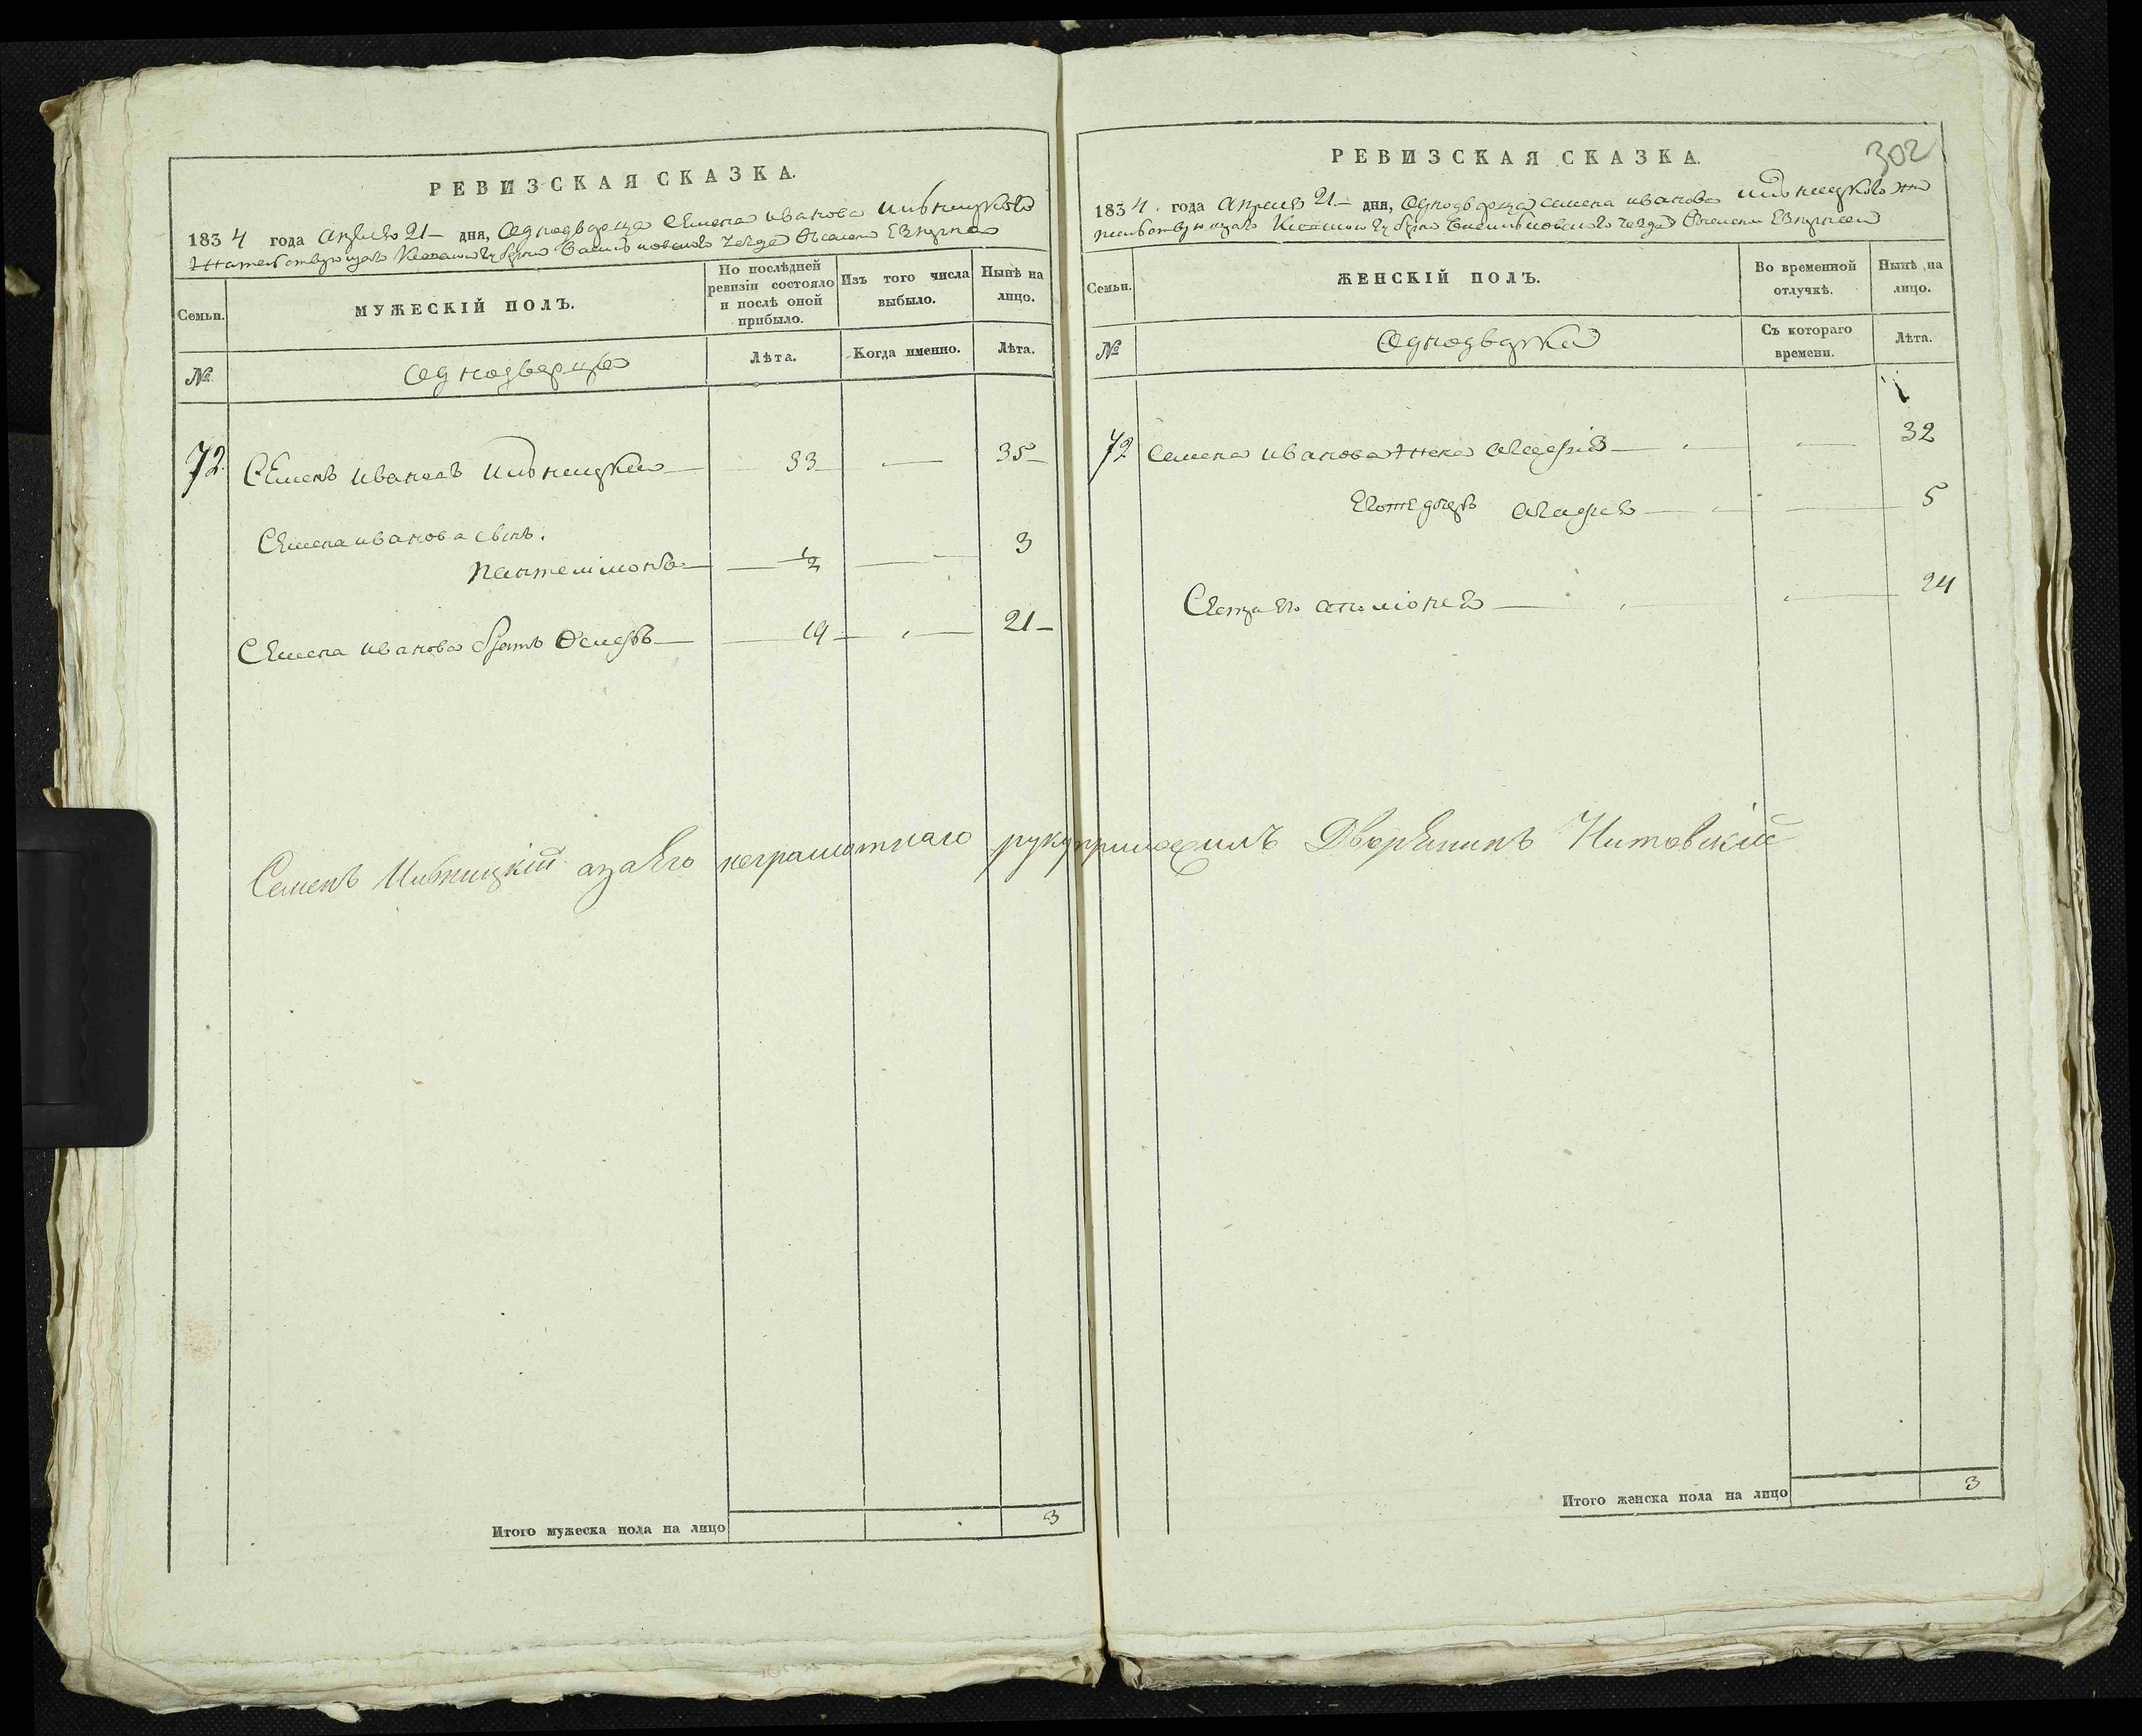 РЕВИЗСКАЯ СКАЗКА.
1834 года Апреля 21 дня, Однодворца Семена Иванова Ивницкого
жительствующаго Киевской Губернии Васильковского уезда
Семьи.
МУЖЕСКІЙ ПОЛЪ.
По послѣдней ревизіи состояло и послѣ оной прибыло.
Изъ того числа выбыло.
Нынѣ на лицо.
№
Однодворцы
Лѣта.
Когда именно.
Лѣта.
72 Семенъ Ивановъ Ивницкий 33 35
Семена Иванова сынъ.
Пантелимонъ 1/2 3
Семена Иванова братъ Ѳедоръ 19 21
Семенъ Ивницкій азаего неграмотнаго руку приложилъ Дворянинъ Нитовскій
Итого мужеска пола на лицо 3
РЕВИЗСКАЯ СКАЗКА.
302
1834 года Апреля 21 дня, Однодворца Семена Иванова Ивницкого жи
тельствующаго Киевской Губернии Васильковского уезда
Семьи.
ЖЕНСКІЙ ПОЛЪ.
Во временной отлучкѣ.
Нынѣ на лицо.
№
Однодворки
Съ котораго времени.
Лѣта.
72 Семена Иванова жена 32
Егоже дочерь Агафия 5
Сестра его 24
Итого женска пола на лицо 3